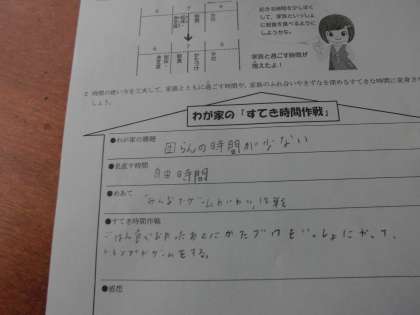 起きる時間を少し早く
して、家族といっしょ
に朝食を食べるように
しようかな。
家族と過ごす時間が
増えたよ！
2 時間の使い方を工夫して、家族とともに過ごす時間や、家族のふれ合いやきずなを深めるすてきな時間に変身させ
しょう。
わが家の「すてき時間作戦」
●わが家の課題
団らんの時間が少ない
●見直す時間
自由時間
●めあて
みんなでゲーム
●すてき時間作戦
ごはん食べおわったあとにかたづけをいっしょにやって、
トランプやゲームをする。
●感想